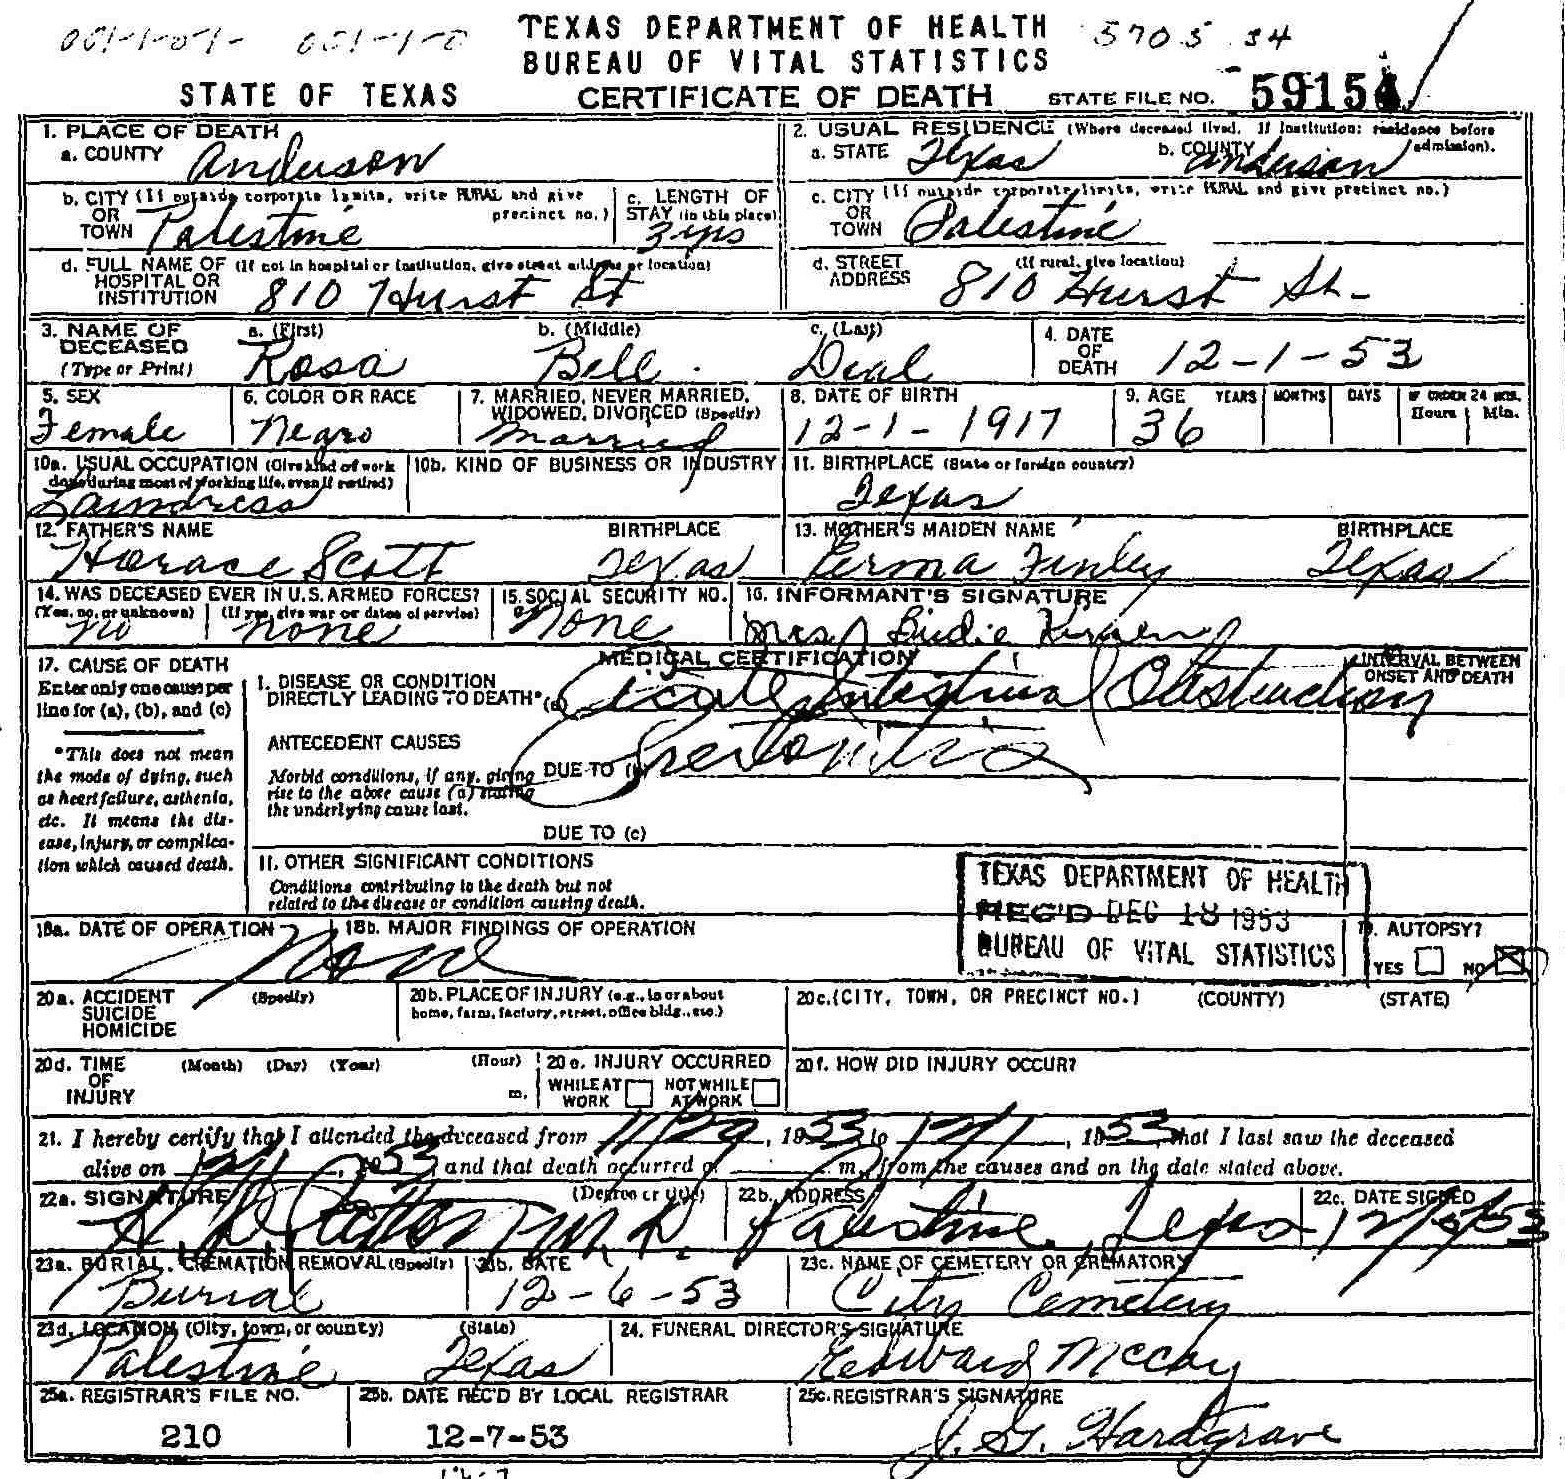 TEXAS DEPARTMENT OF HEALTH 5705 34
BUREAU OF VITAL STATISTICS
STATE OF TEXAS CERTIFICATE OF DEATH STATE FILE NO. 5915
1. PLACE OF DEATH
a. COUNTY Anderson
2. USUAL RESIDENCE (Where deceased lived. If institution: residence before admission).
a. STATE Texas b. COUNTY Anderson
b. CITY (If outside corporate limits, write RURAL and give precinct no.)
OR TOWN Palestine
c. LENGTH OF STAY (in this place) 3 yrs
c. CITY (If outside corporate limits, write RURAL and give precinct no.)
OR TOWN Palestine
d. FULL NAME OF (If not in hospital or institution, give street address or location)
HOSPITAL OR INSTITUTION 810 Hurst St
d. STREET ADDRESS (If rural, give location)
810 Hurst St.
3. NAME OF DECEASED (Type or Print)
a. (First) Rosa b. (Middle) Bell c. (Last) Deal
4. DATE OF DEATH 12-1-53
5. SEX Female
6. COLOR OR RACE Negro
7. MARRIED, NEVER MARRIED, WIDOWED, DIVORCED (Specify) Married
8. DATE OF BIRTH 12-1-1917
9. AGE YEARS 36 MONTHS DAYS IF UNDER 24 HRS. Hours Min.
10a. USUAL OCCUPATION (Give kind of work done during most of working life, even if retired)
Laundress
10b. KIND OF BUSINESS OR INDUSTRY
11. BIRTHPLACE (State or foreign country)
Texas
12. FATHER'S NAME BIRTHPLACE
Horace Scott Texas
13. MOTHER'S MAIDEN NAME BIRTHPLACE
Finley Texas
14. WAS DECEASED EVER IN U.S. ARMED FORCES?
(Yes, no, or unknown) (If yes, give war or dates of service)
no none
15. SOCIAL SECURITY NO.
None
16. INFORMANT'S SIGNATURE
Mrs. Birdie
17. CAUSE OF DEATH
Enter only one cause per line for (a), (b), and (c)
*This does not mean the mode of dying, such as heart failure, asthenia, etc. It means the disease, injury, or complication which caused death.
MEDICAL CERTIFICATION
INTERVAL BETWEEN ONSET AND DEATH
I. DISEASE OR CONDITION DIRECTLY LEADING TO DEATH* (a) Acute Intestinal Obstruction
ANTECEDENT CAUSES
Morbid conditions, if any, giving rise to the above cause (a) stating the underlying cause last.
DUE TO (b) Peritonitis
DUE TO (c)
II. OTHER SIGNIFICANT CONDITIONS
Conditions contributing to the death but not related to the disease or condition causing death.
TEXAS DEPARTMENT OF HEALTH
REC'D DEC 18 1953
BUREAU OF VITAL STATISTICS
18a. DATE OF OPERATION None
18b. MAJOR FINDINGS OF OPERATION
19. AUTOPSY?
YES NO
20a. ACCIDENT SUICIDE HOMICIDE (Specify)
20b. PLACE OF INJURY (e.g., in or about home, farm, factory, street, office bldg., etc.)
20c. (CITY, TOWN, OR PRECINCT NO.) (COUNTY) (STATE)
20d. TIME OF INJURY (Month) (Day) (Year) (Hour) m.
20e. INJURY OCCURRED
WHILE AT WORK NOT WHILE AT WORK
20f. HOW DID INJURY OCCUR?
21. I hereby certify that I attended the deceased from 11/29, 1953 to 12/1, 1953, that I last saw the deceased
alive on 12/1, 1953, and that death occurred at m., from the causes and on the date stated above.
22a. SIGNATURE (Degree or title)
M.D.
22b. ADDRESS
Palestine, Texas
22c. DATE SIGNED
12/5/53
23a. BURIAL, CREMATION, REMOVAL (Specify)
Burial
23b. DATE
12-6-53
23c. NAME OF CEMETERY OR CREMATORY
City Cemetery
23d. LOCATION (City, town, or county) (State)
Palestine Texas
24. FUNERAL DIRECTOR'S SIGNATURE
Edward McCoy
25a. REGISTRAR'S FILE NO.
210
25b. DATE REC'D BY LOCAL REGISTRAR
12-7-53
25c. REGISTRAR'S SIGNATURE
J. G. Hardgrave